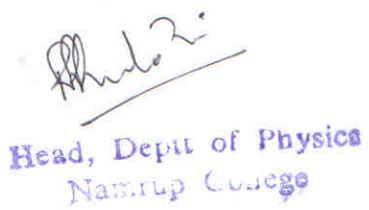 Head, Deptt of Physics
Namrup College